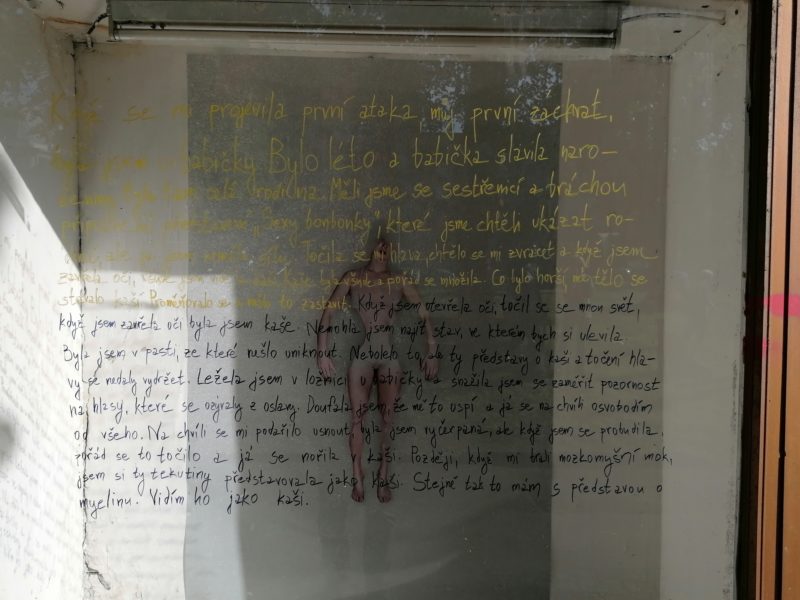 Když se mi projevila první ataka, můj první záchvat,
byla jsem u babičky. Bylo léto a babička slavila naro-
zeniny. Byla tam celá rodina. Měli jsme se sestřenicí a bráchou
"Sexy bonbonky", které jsme chtěli ukázat ro-
ale já jsem neměla sílu. Točila se mi hlava, chtělo se mi zvracet a když jsem
zavřela oči, Kaše byla všude a pořád se množila. Co bylo horší, mé tělo se
stávalo kaší. Proměňovalo se a mělo to zastavit. Když jsem otevřela oči, točil se se mnou svět,
když jsem zavřela oči byla jsem kaše. Nemohla jsem najít stav, ve kterém bych si ulevila.
Byla jsem v pasti, ze které nešlo uniknout. Nebolelo to, ale ty představy o kaši a točení hla-
vy se nedaly vydržet. Ležela jsem v ložnici u babičky a snažila jsem se zaměřit pozornost
na hlasy, které se ozývaly z oslavy. Doufala jsem, že mě to uspí a já se na chvíli osvobodím
od všeho. Na chvíli se mi podařilo usnout, byla jsem vyčerpaná, ale když jsem se probudila,
pořád se to točilo a já se nořila v kaši. Později, když mi brali mozkomyšní mok,
jsem si ty tekutiny představovala jako kaši. Stejně tak to mám s představou o
myelinu. Vidím ho jako kaši.